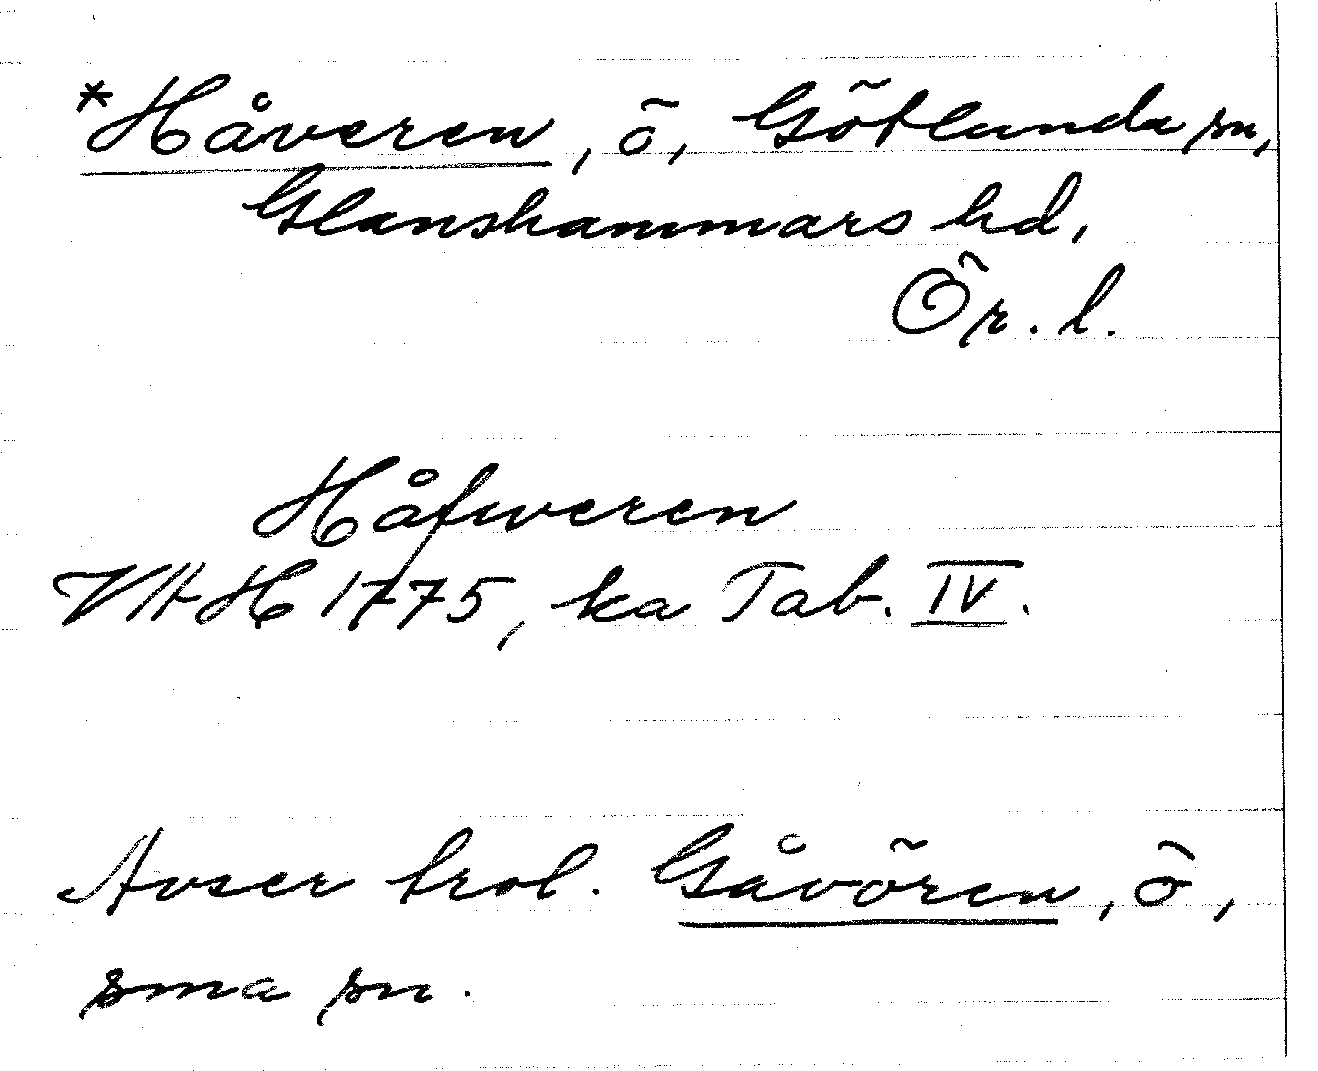 *Håveren, ö, Götlunda sn,
Glanshammars hd,
Ör. l.
Håfweren
VAH 1775, ka Tab. IV.
Avser trol. Gåvören, ö,
sma sn.